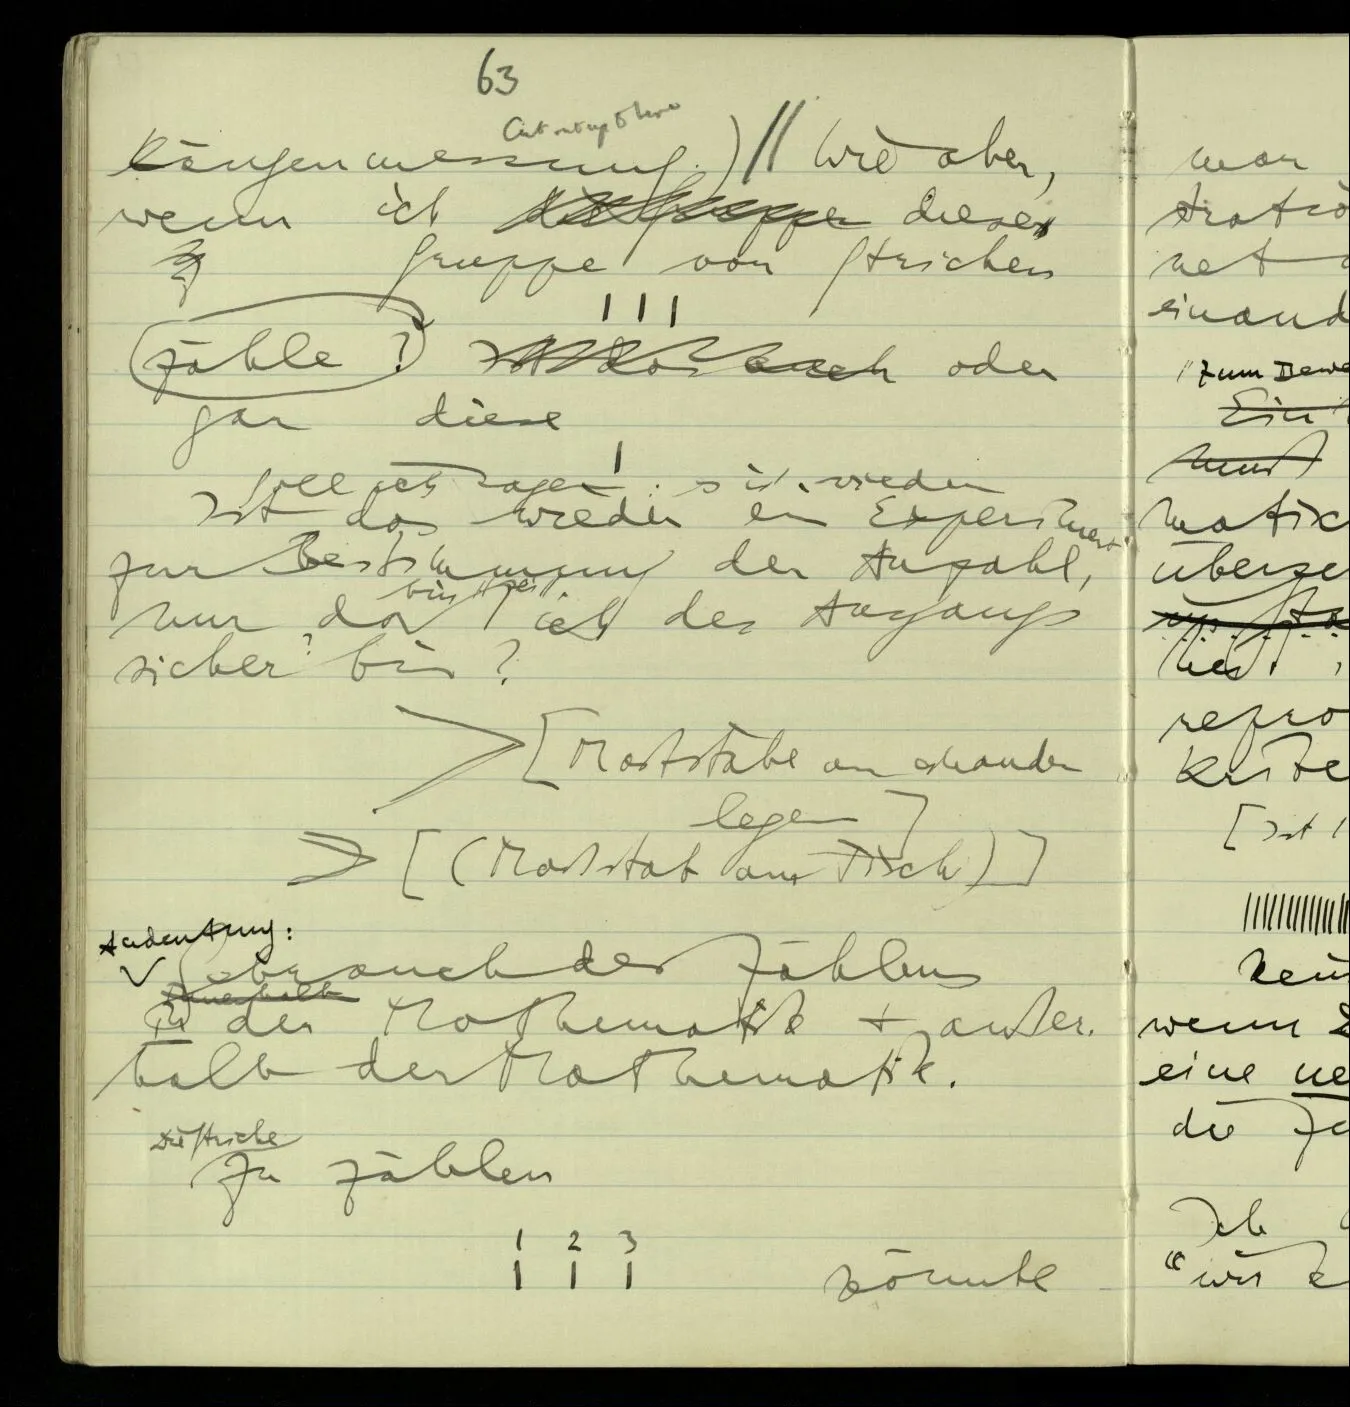 63
Längenmessung.) // Wie aber,
wenn ich die Gruppe diese
Gruppe von Strichen
| | |
zähle? Ist das auch oder
gar diese
|
soll ich sagen: wieder
Ist das wieder ein Experiment
zur Bestimmung der Anzahl,
bin
nur daß ich des Ausgangs
sicher bin?
[Maßstäbe an einander
legen]
[(Maßstab am Tisch)]
Andeutung:
Gebrauch des Zählens
innerhalb
In der Mathematik + außer-
halb der Mathematik.
Die Striche
Zu zählen
1 2 3
| | | könnte
man
net
einand
"Zum Bewe
Ein
matisc
überze
repro
Krite
[Ist
||||||||||||
kein
wenn
eine ne
die
Ich
"wie